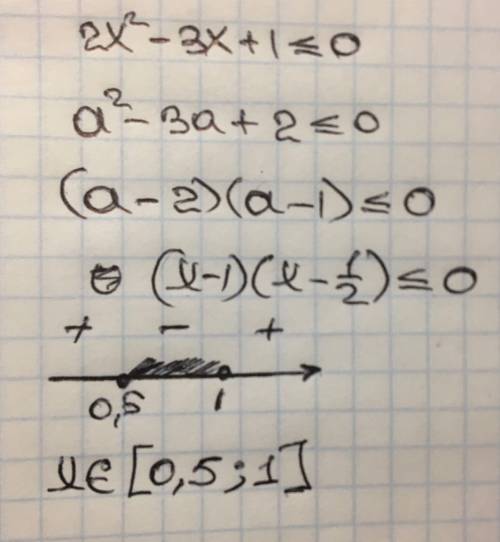 2x² - 3x + 1 ≤ 0
a² - 3a + 2 ≤ 0
(a - 2)(a - 1) ≤ 0
(x - 1)(x - 1/2) ≤ 0
+ - +
0,5 1
x ∈ [0,5 ; 1]